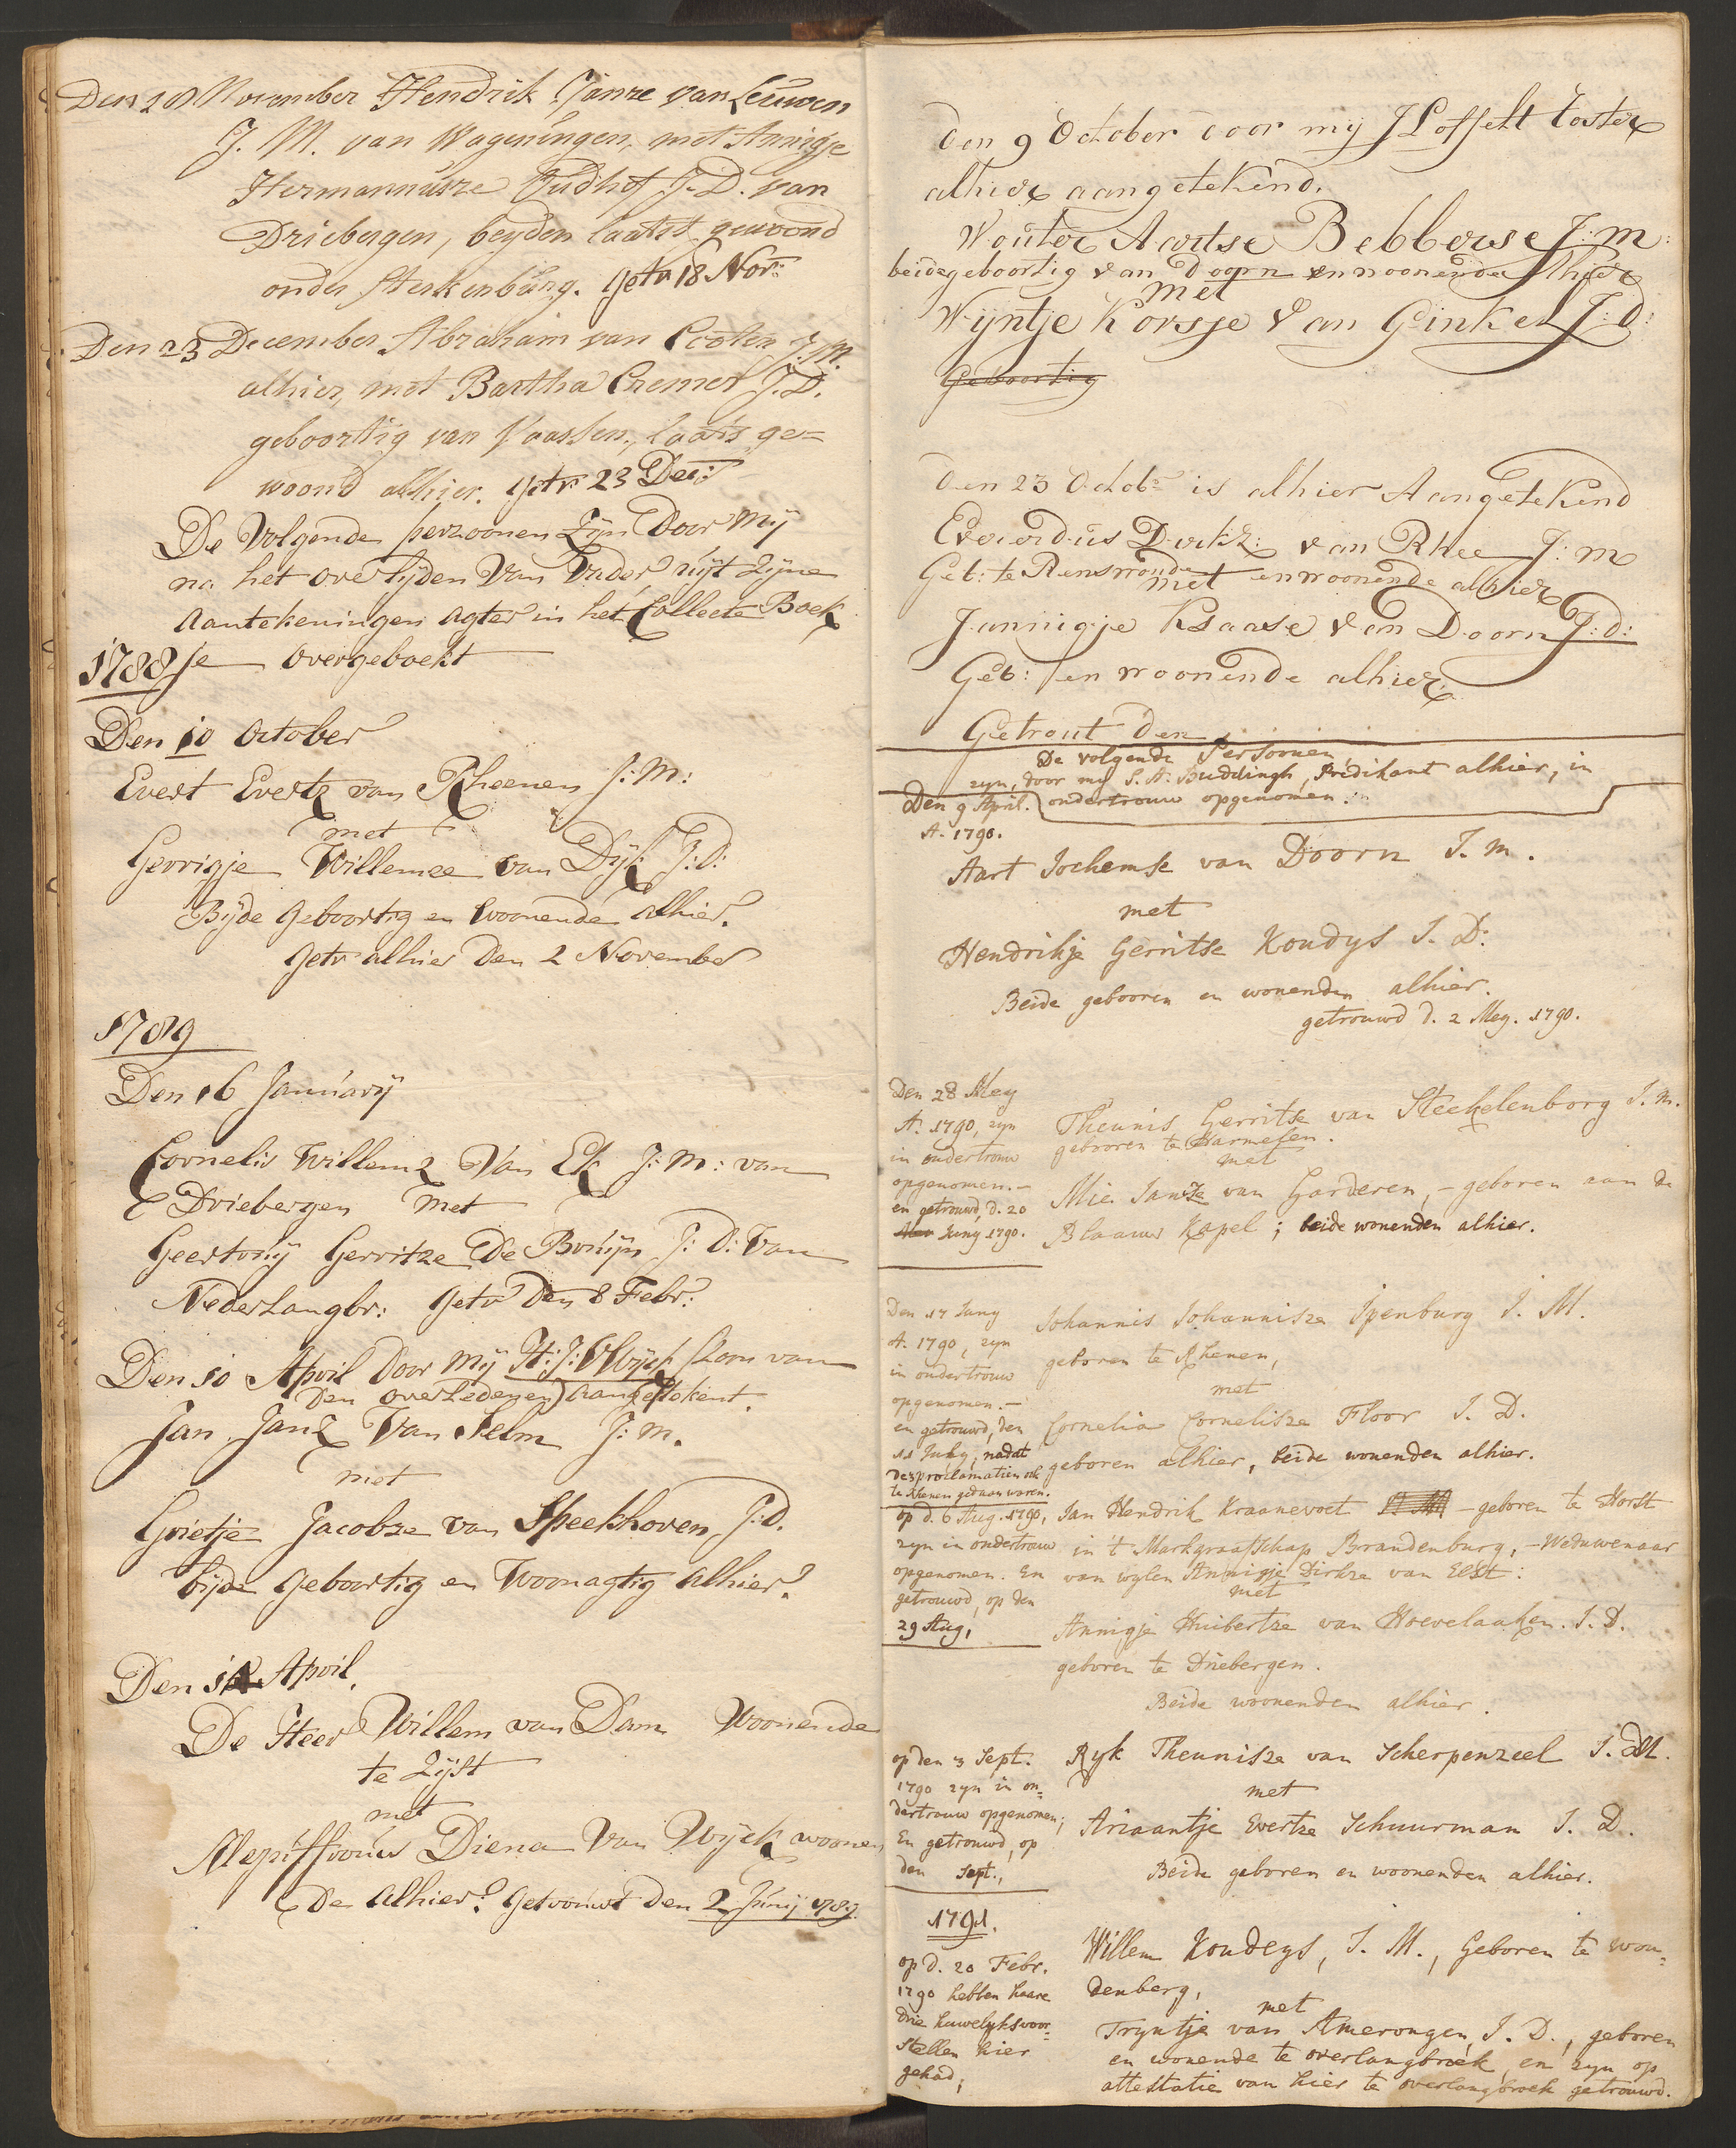 Den 20 November Hendrik Janze van Leuwen
J. M. van Wageningen, met Annigje
Hermannusze Judhof J. D. van
Driebergen, beyden laatst gewoond
onder Sterkenburg. getr 18 Nov:
Den 23 December Abraham van Cooten J:M.
alhier, met Bartha Cremer J. D.
geboortig van Vaassen, laats ge=
woond alhier. getr 23 Dec:
De Volgende perzoonen Zijn Door Mij
na het overlijden Van Vader uijt Zijne
Aantekeningen Agter in het Collecte Boek
1788 overgeboekt
Den 10 October
Evert Evertz van Rheenen J: M:
met
Gerrigje Willemze van Dijk J: D:
Bijde Geboortig en Woonende Alhier.
Getr alhier Den 2 November
1789
Den 16 Januarij
Cornelis Willemz Van Ek J: M: van
Driebergen Met
Geertruij Gerritze De Bruijn J: D: Van
NederLangbr: Getr Den 8 Febr:
Den 10 April Door Mij H: J: V Wijck Zoon van
Den overLedenen Aangetekent.
Jan Janz Van Selm J: M.
met
Grietje Jacobze van Speekhoven J: D.
bijde geboortig en Woonagtig Alhier.
Den April.
De Heer Willem van Dam Woonende
te Zijst
met
Mejuffrouw Diena Van Wijck woonen
De Alhier. Getrouwt Den 2 Junij 1789
den 9 October door mij J Loffelt Coster
alhier aangetekend.
Wouter Aartse Bebberse J: m:
beide geboortig van Doorn en woonende Alhier
met
Wijntje Korsse Van Ginkel J: d:
Geboortig
den 23 Octobr is alhier Aangetekend
Everdus Dirkz: van Rhee J: m
Geb: te Renswoude en woonende alhier
met
Jannigje Klaase van Doorn J: d:
Geb: en woonende alhier
Getrout den
De volgende Persoonen
zyn, door my S. A. Buddingh, Prédikant alhier, in
Den 9 April. ondertrouw opgenomen.
A. 1790.
Aart Jochemse van Doorn J. m.
met
Hendrikje Gerritse Koudys J. D:
Beide gebooren en wonenden alhier.
getrouwd d. 2 Mey. 1790.
Den 28 Mey
A. 1790, zyn
in ondertrouw
opgenomen.-
en getrouwd, d. 20
Juny 1790.
Theunis Gerritse van Steekelenborg J. m.
gebooren te Harmelen.
met
Mie Janse van Garderen, - geboren aan de
Blaauw Kapel; beide wonenden alhier.
Den 17 Juny
A. 1790, zyn
in ondertrouw
opgenomen.-
en getrouwd, den
11 July, nadat
de 3 proclamatien ook
te Rhenen gedaan waren.
Johannis Johannisze Ipenburg J. M.
geboren te Rhenen,
met
Cornelia Cornelisze Floor J. D.
geboren alhier, beide wonenden alhier.
op d. 6 Aug. 1790,
zyn in ondertrouw
opgenomen. En
getrouwd, op den
29 Aug,
Jan Hendrik Kraanevoet - geboren te Horst
in 't Markgraafschap Brandenburg, - Weduwenaar
van wylen Annigje Dirkze van Elst:
met
Annigje Huibertze van Hoevelaaken. J. D.
geboren te Driebergen.
Beide woonenden alhier.
op den 3 Sept.
1790 zyn in on=
dertrouw opgenomen;
En getrouwd, op
den Sept.,
Ryk Theunisze van Scherpenzeel J. M.
met
Ariaantje Evertze Schuurman J. D.
Beide geboren en woonenden alhier.
1791.
op d. 20 Febr.
1790 hebben haare
drie huwelyksvoor=
stellen hier
gehad;
Willem Koudeys, J. M., Geboren te Wou=
denberg,
met
Tryntje van Amerongen, J. D., geboren
en wonende te overlangbroek, en zyn op
attestatie van hier te overlangbroek getrouwd.